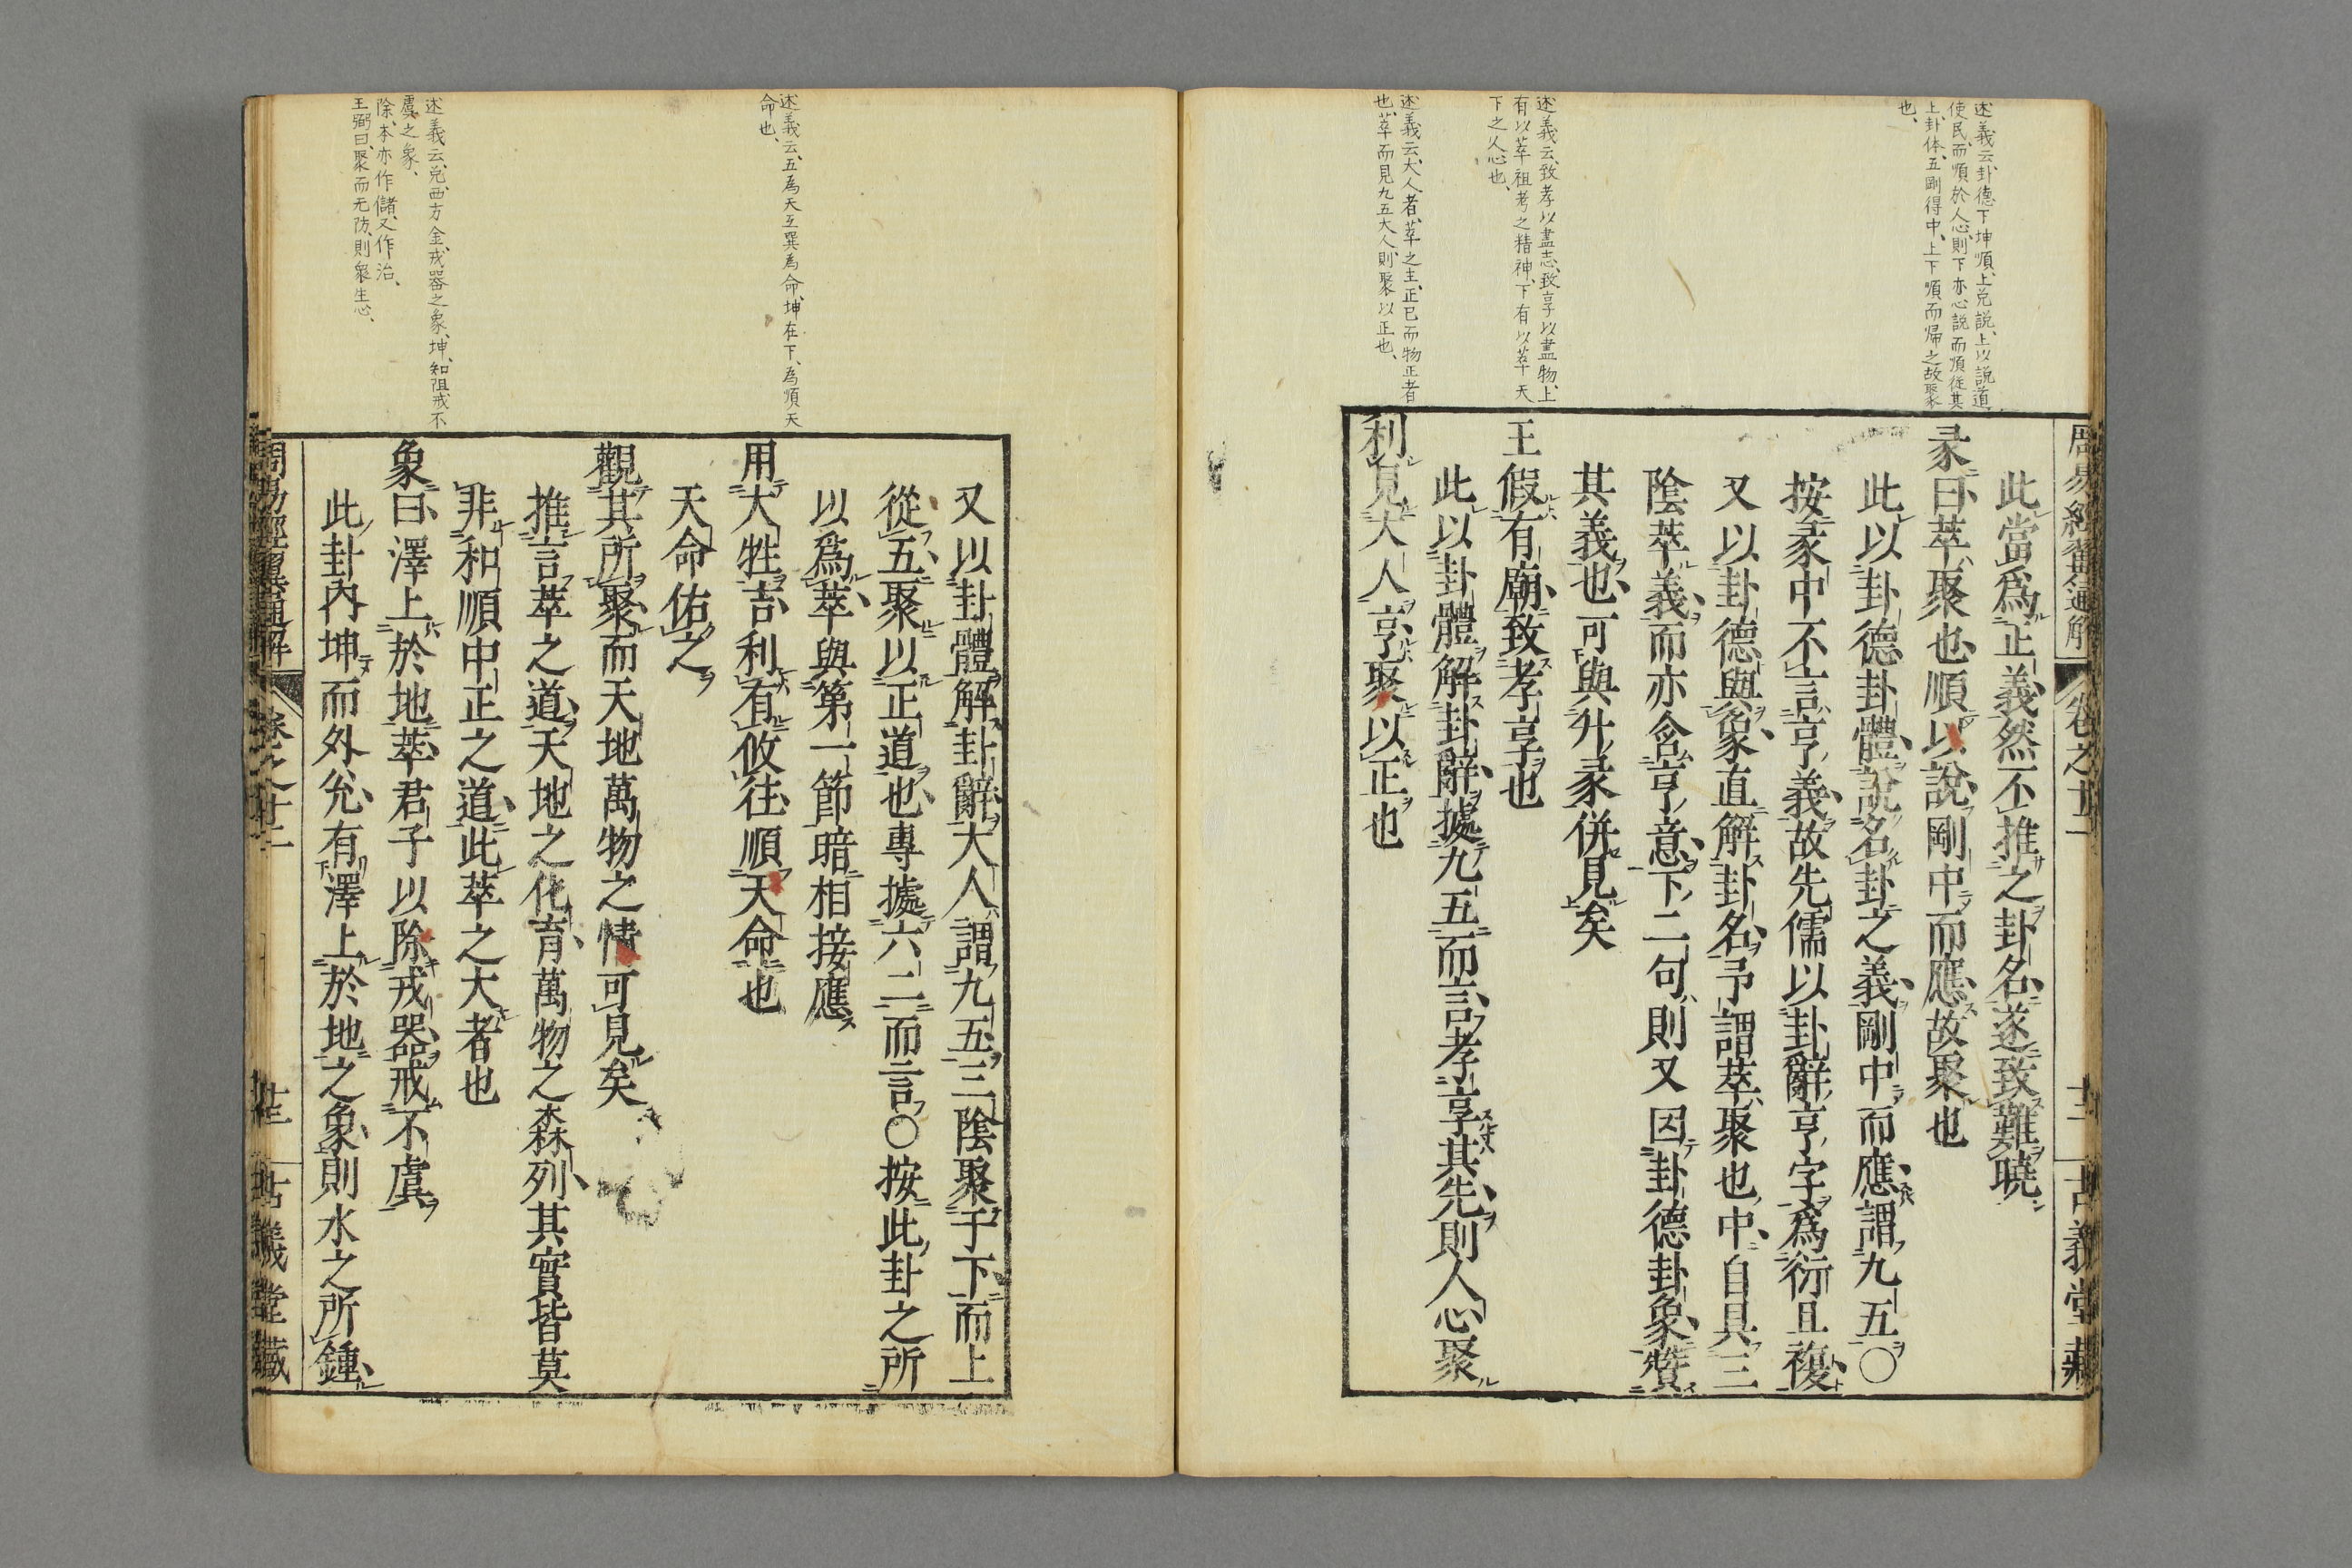 述義云、卦德下坤順、上兑説、上以説道
使民、而順於人心、則下亦心説而順從其
上、卦体、五剛得中、上下順而帰之故聚
也、
述義云、致孝以盡志、致享以盡物、上
有以萃祖考之精神、下有以萃天
下之人心也、
述義云、大人者、萃之主、正已而物正者
也、萃而見九五大人、則聚以正也、
周易經翼通解
卷之十二
十二
古義堂藏
此當爲正義然不推之卦名遂致難曉
彖曰萃聚也順以說剛中而應故聚也
此以卦德卦體說名卦之義剛中而應謂九五〇
按彖中不言亨義故先儒以卦辭亨字爲衍且複
又以卦德與象直解卦名予謂萃聚也中自具三
陰萃義而亦含亨意下二句則又因卦德卦象贊
其義也可與升彖併見矣
王假有廟致孝享也
此以卦體解卦辭據九五而言孝享其先則人心聚
利見大人亨聚以正也
述義云、五為天互巽為命、坤在下、為順天
命也、
述義云、兑、西方金、戒器之象、坤、知阻戒不
虞之象、
除、本亦作儲、又作治、
王弼曰、聚而无防、則衆生心、
又以卦體解卦辭大人謂九五三陰聚于下而上
從五聚以正道也專據六二而言〇按此卦之所
以爲萃與第一節暗相接應
用大牲吉利有攸往順天命也
天命佑之
觀其所聚而天地萬物之情可見矣
推言萃之道天地之化育萬物之森列其實皆莫
非和順中正之道此萃之大者也
象曰澤上於地萃君子以除戎器戒不虞
此卦內坤而外兊有澤上於地之象則水之所鍾
周易經翼通解
卷之十二
古義堂藏